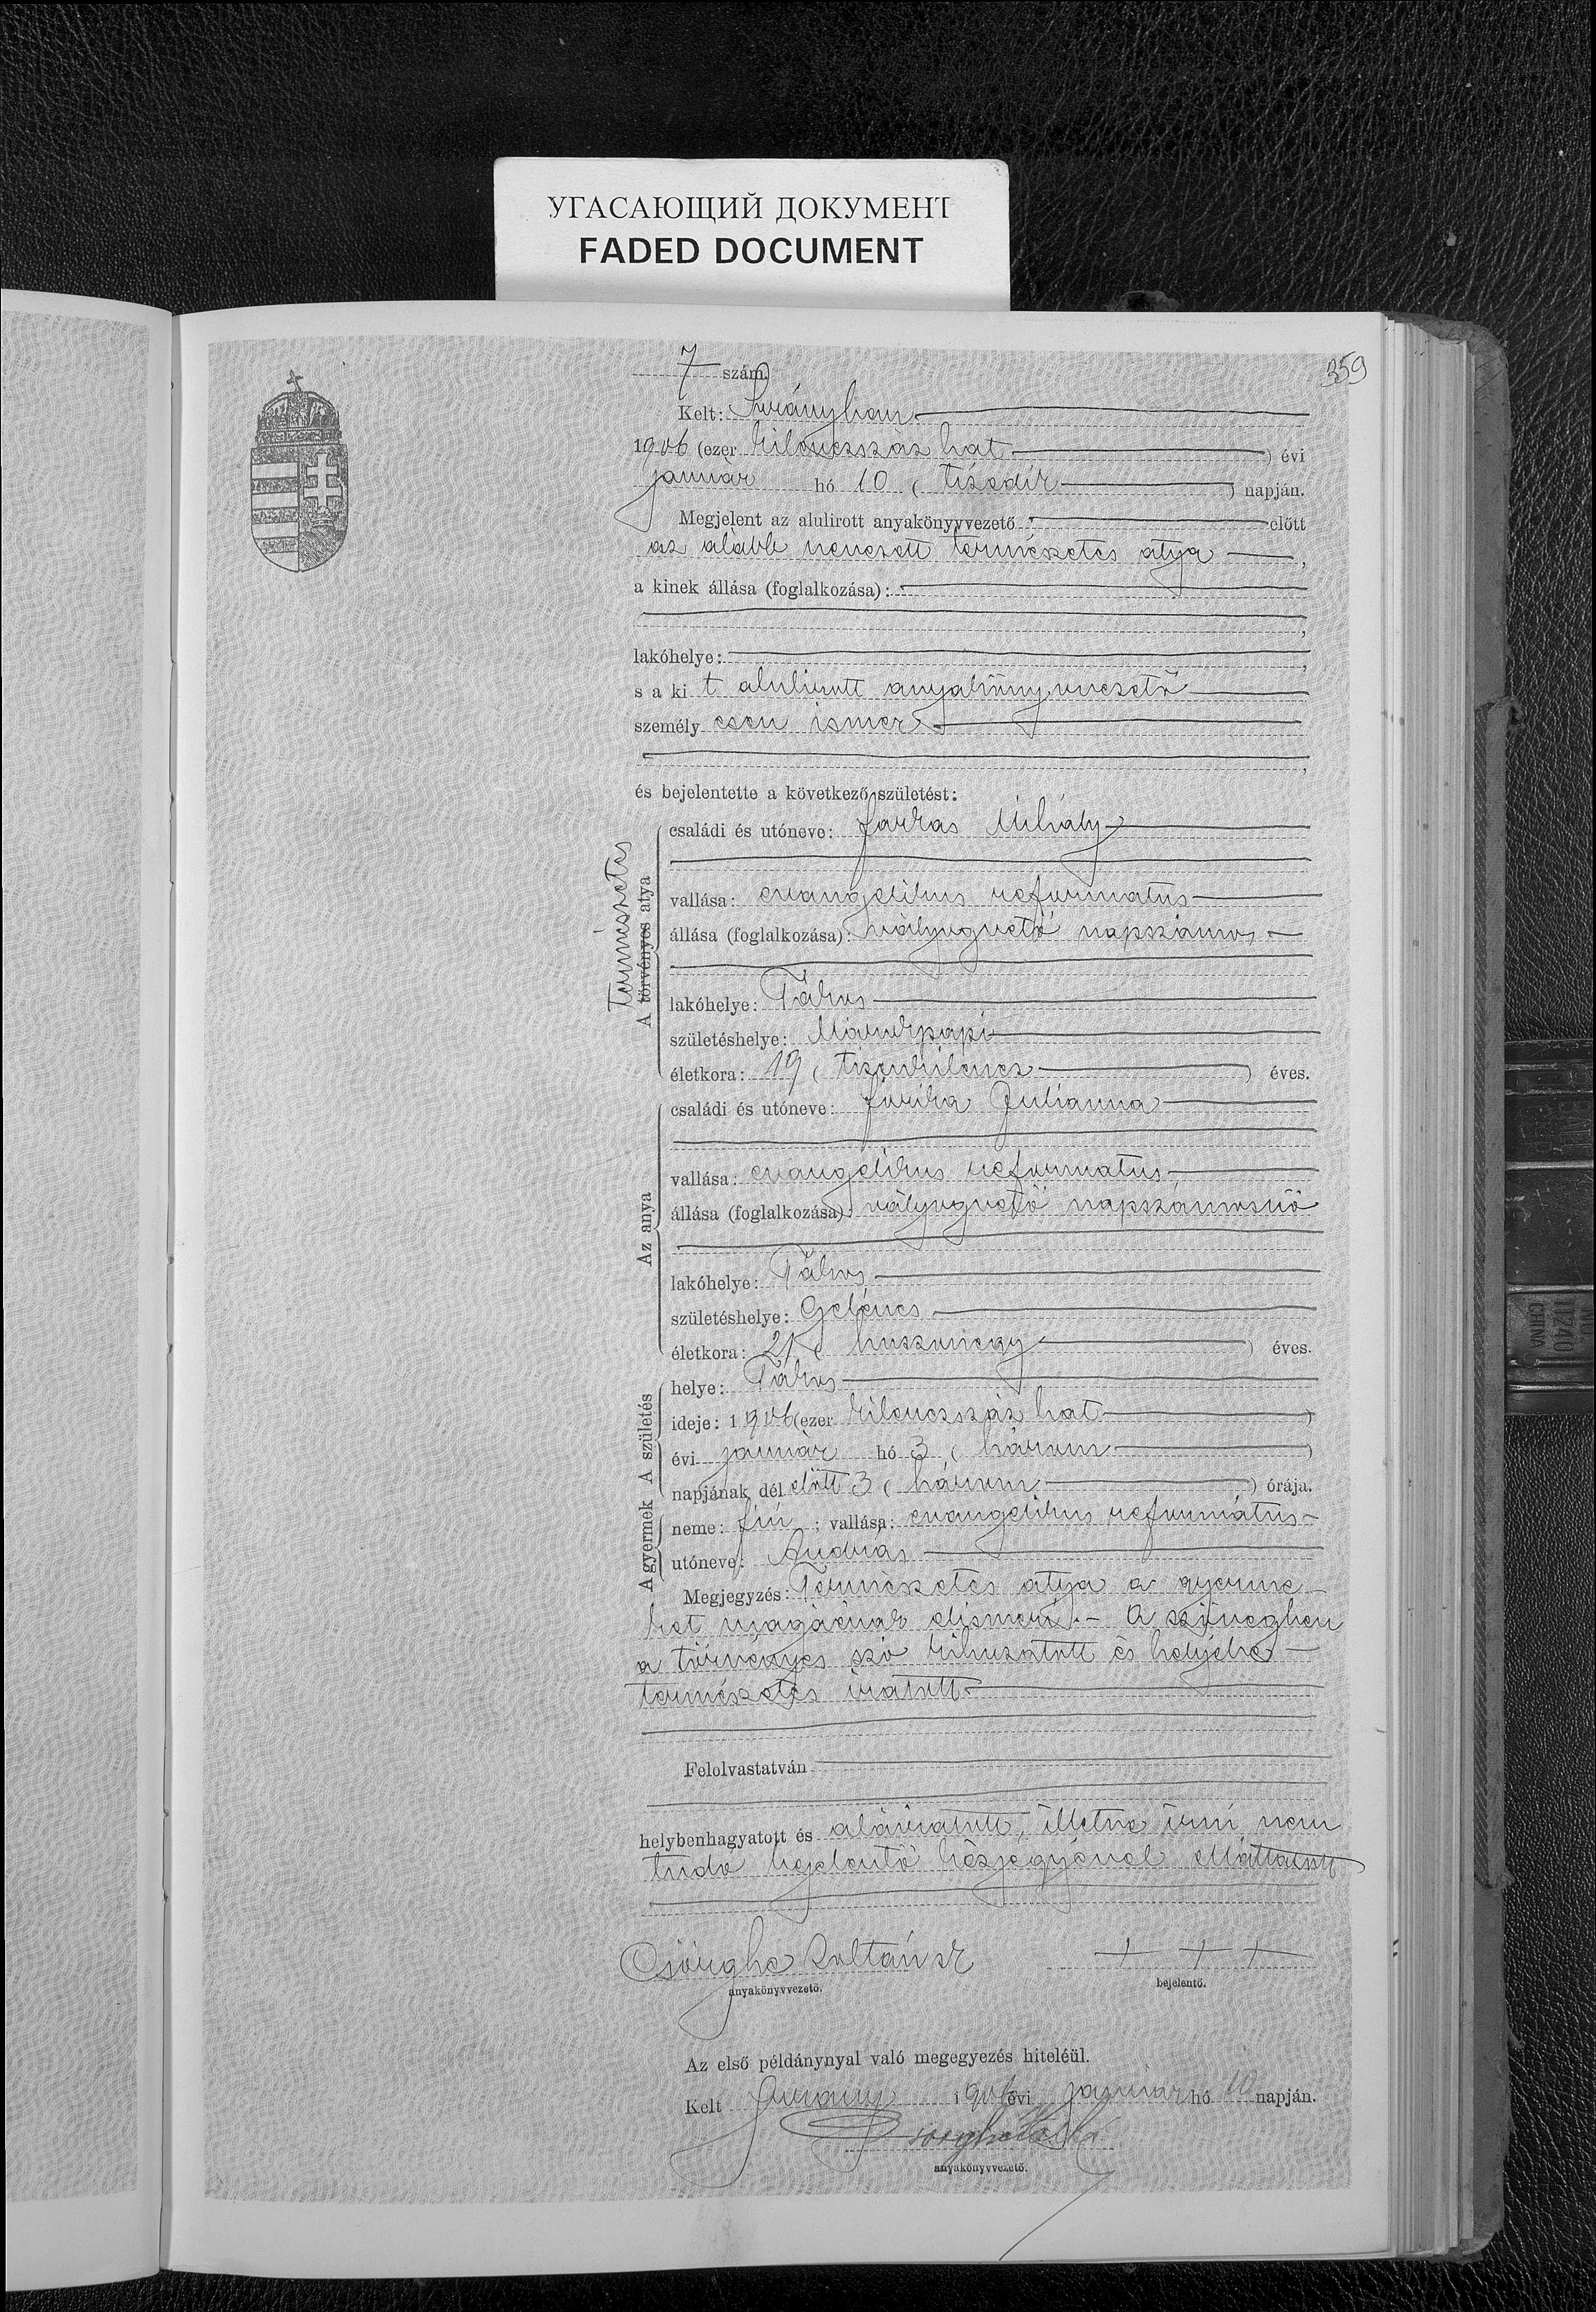 УГАСАЮЩИЙ ДОКУМЕНТ
FADED DOCUMENT
359
7 szám.
Kelt: Surányban
1906 (ezer kilenczszáz hat) évi
január hó 10 (tizedik) napján.
Megjelent az alulirott anyakönyvvezető előtt
az alább nevezett természetes atya,
a kinek állása (foglalkozása):
lakóhelye:
s a kit alulirott anyakönyvvezető
személyesen ismer
és bejelentette a következő születést:
Természetes
A törvényes atya
családi és utóneve: Farkas Mihály
vallása: evangelikus reformatus
állása (foglalkozása): vályogvető napszámos
lakóhelye: Tákos
születéshelye: Márokpapi
életkora: 19 (tizenkilencz) éves.
Az anya
családi és utóneve: Julianna
vallása: evangelikus reformatus
állása (foglalkozása): vályogvető napszámosnő
lakóhelye: Tákos
születéshelye: Gelénes
életkora: 21 (huszonegy) éves.
A születés
helye: Tákos
ideje: 1906 (ezer kilenczszáz hat)
évi január hó 3 (három)
napjának dél előtt 3 (három) órája.
A gyermek
neme: fiú; vallása: evangelikus református
utóneve: András
Megjegyzés: Természetes atya a gyerme-
ket magáénak elismeri. - A szövegben
a törvényes szó kihuzatott és helyébe
természetes iratott.
Felolvastatván
helybenhagyatott és aláiratott, illetve irni nem
tudó bejelentő kézjegyével elláttatott
Csörghe Zoltán sk
anyakönyvvezető.
+ + +
bejelentő.
Az első példánynyal való megegyezés hiteléül.
Kelt Surány 1906 évi január hó 10 napján.
anyakönyvvezető.